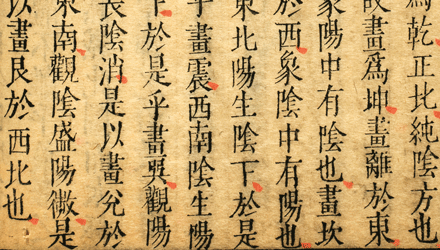 為乾正北純陰方也
故畫為坤畫離於東
象陽中有陰也畫坎
於西象陰中有陽也
東北陽生陰下於是
乎畫震西南陰生陽
下於是乎畫巽觀陽
長陰消是以畫兌於
東南觀陰盛陽微是
以畫艮於西北也